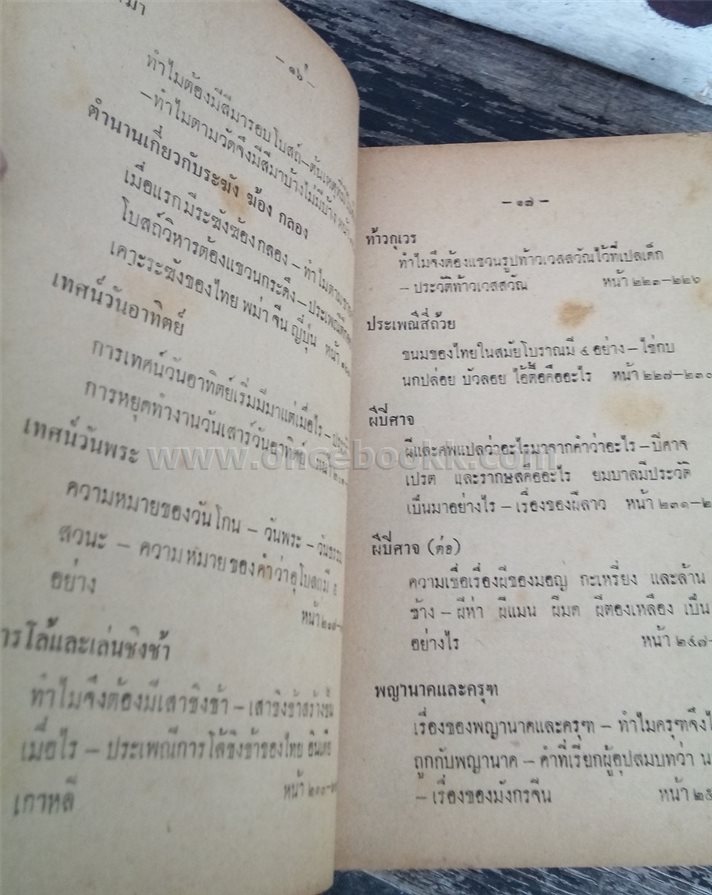 – ๑๖ –
ทำไมต้องมีสีมารอบโบสถ์–ต้นเหตุที่มี
–ทำไมตามวัดจึงมีสีมาบ้างไม่มีบ้าง หน้า
ตำนานเกี่ยวกับระฆัง ฆ้อง กลอง
เมื่อแรกมีระฆังฆ้องกลอง – ทำไมตาม
โบสถ์วิหารต้องแขวนกระดึง–ประเพณี
เคาะระฆังของไทย พม่า จีน ญี่ปุ่น หน้า
เทศน์วันอาทิตย์
การเทศน์วันอาทิตย์เริ่มมีมาแต่เมื่อไร–
การหยุดทำงานวันเสาร์วันอาทิตย์
เทศน์วันพระ
www.oncebookk.com
ความหมายของวันโกน – วันพระ – วันธรรม
สวนะ – ความหมายของคำว่าอุโบสถมี ๕
อย่าง
หน้า
การโล้และเล่นชิงช้า
ทำไมจึงต้องมีเสาชิงช้า – เสาชิงช้าสร้างขึ้น
เมื่อไร – ประเพณีการโล้ชิงช้าของไทย อินเดีย
เกาหลี หน้า
– ๑๗ –
ท้าวกุเวร
ทำไมจึงต้องแขวนรูปท้าวเวสสวัณไว้ที่เปลเด็ก
– ประวัติท้าวเวสสวัณ หน้า ๒๒๓–๒๒๖
ประเพณีสี่ถ้วย
ขนมของไทยในสมัยโบราณมี ๔ อย่าง – ไข่กบ
นกปล่อย บัวลอย ไอ้ตื้อคืออะไร หน้า ๒๒๗–๒๓๐
ผีปีศาจ
ผีและศพแปลว่าอะไรมาจากคำว่าอะไร – ปีศาจ
เปรต และรากษสคืออะไร ยมบาลมีประวัติ
เป็นมาอย่างไร – เรื่องของผีลาว หน้า ๒๓๑–๒
ผีปีศาจ (ต่อ)
ความเชื่อเรื่องผีของมอญ กะเหรี่ยง และล้าน
ช้าง – ผีห่า ผีแมน ผีมด ผีตองเหลือง เป็น
อย่างไร หน้า ๒๔๗–
พญานาคและครุฑ
เรื่องของพญานาคและครุฑ – ทำไมครุฑจึงไ
ถูกกับพญานาค – คำที่เรียกผู้อุปสมบทว่า น
– เรื่องของมังกรจีน หน้า ๒๕